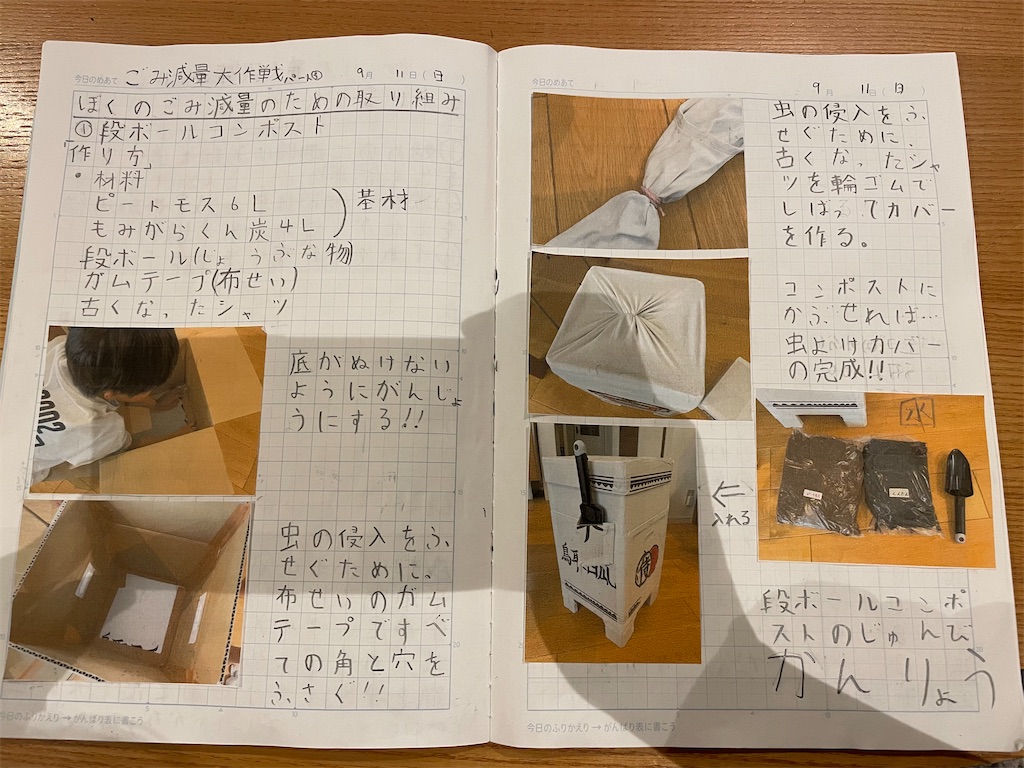 今日のめあて ごみ減量大作戦パート④ 9月 11日(日)
ぼくのごみ減量のための取り組み
①段ボールコンポスト
「作り方」
・材料
ピートモス6L
もみがらくん炭4L
基材
段ボール(じょうぶな物)
ガムテープ(布せい)
古くなったシャツ
底がぬけない
ようにがんじょ
うにする!!
虫の侵入をふ
せぐために、
布せいのガム
テープですべ
ての角と穴を
ふさぐ!!
今日のふりかえり→がんばり表に書こう
今日のめあて 9月 11日
虫の侵入をふ
せぐために、
古くなったシャ
ツを輪ゴムで
しばってカバー
を作る。
コンポストに
かぶせれば…
虫よけカバー
の完成!!
水
←
入れる
段ボールコンポ
ストのじゅんび
かんりょう
今日のふりかえり→がんばり表に書こう